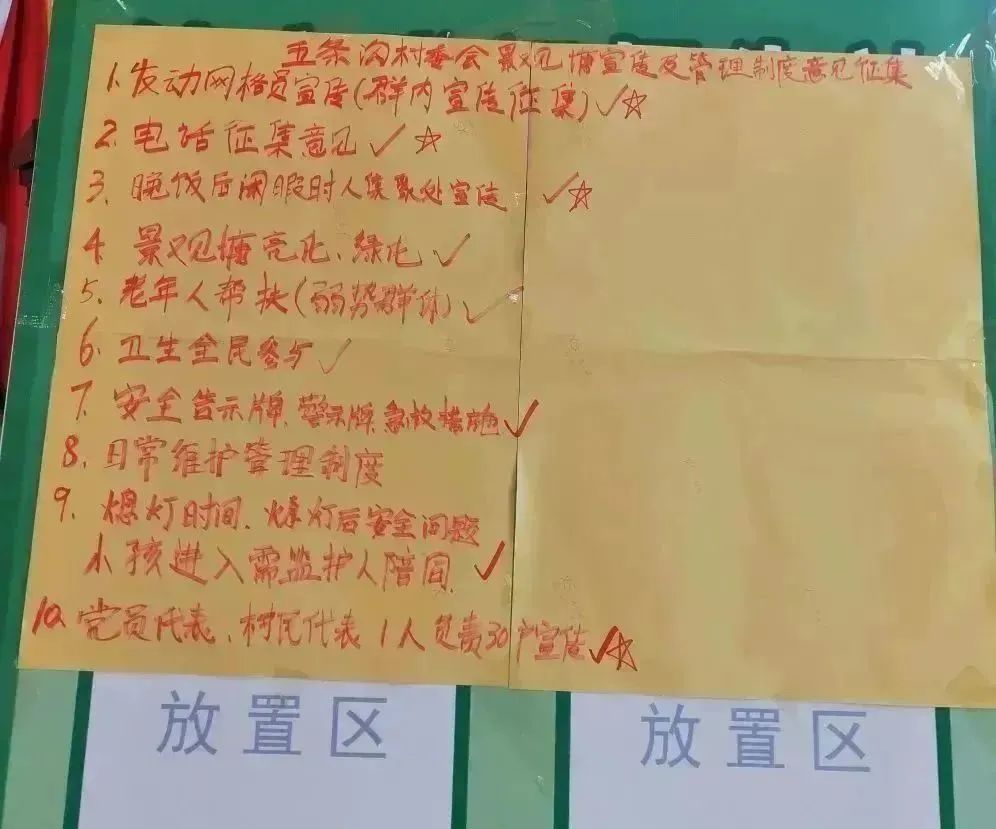 五条沟村委会景观塘宣传及管理制度意见征集
1.发动网格员宣传(群内宣传征集)✓☆
2.电话征集意见✓☆
3、晚饭后闲暇时人集聚处宣传 ✓☆
4 景观塘亮化、绿化✓
5、老年人帮扶(弱势群体)✓
6、卫生全民参与✓
7、安全告示牌、警示牌、急救措施✓
8、日常维护管理制度
9、熄灯时间、熄灯后安全问题
小孩进入需监护人陪同、✓
10、党员代表、村民代表1人负责30户宣传✓☆
放置区
放置区